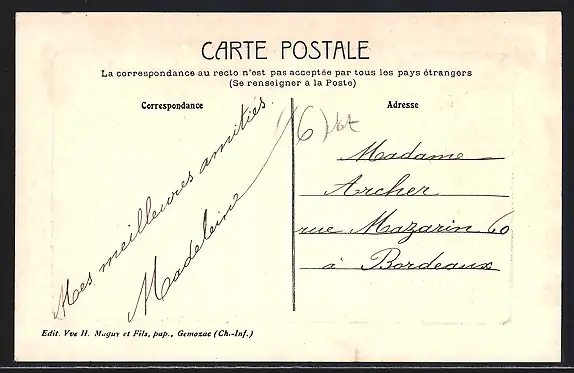 CARTE POSTALE
La correspondance au recto n'est pas acceptée par tous les pays étrangers
(Se renseigner à la Poste)
Correspondance
Adresse
Mes meilleures amitiés.
Madeleine
Madame
Archer
rue Mazarin 60
à Bordeaux
Edit. Vve H. Muguy et Fils, pap., Gemozac (Ch.-Inf.)